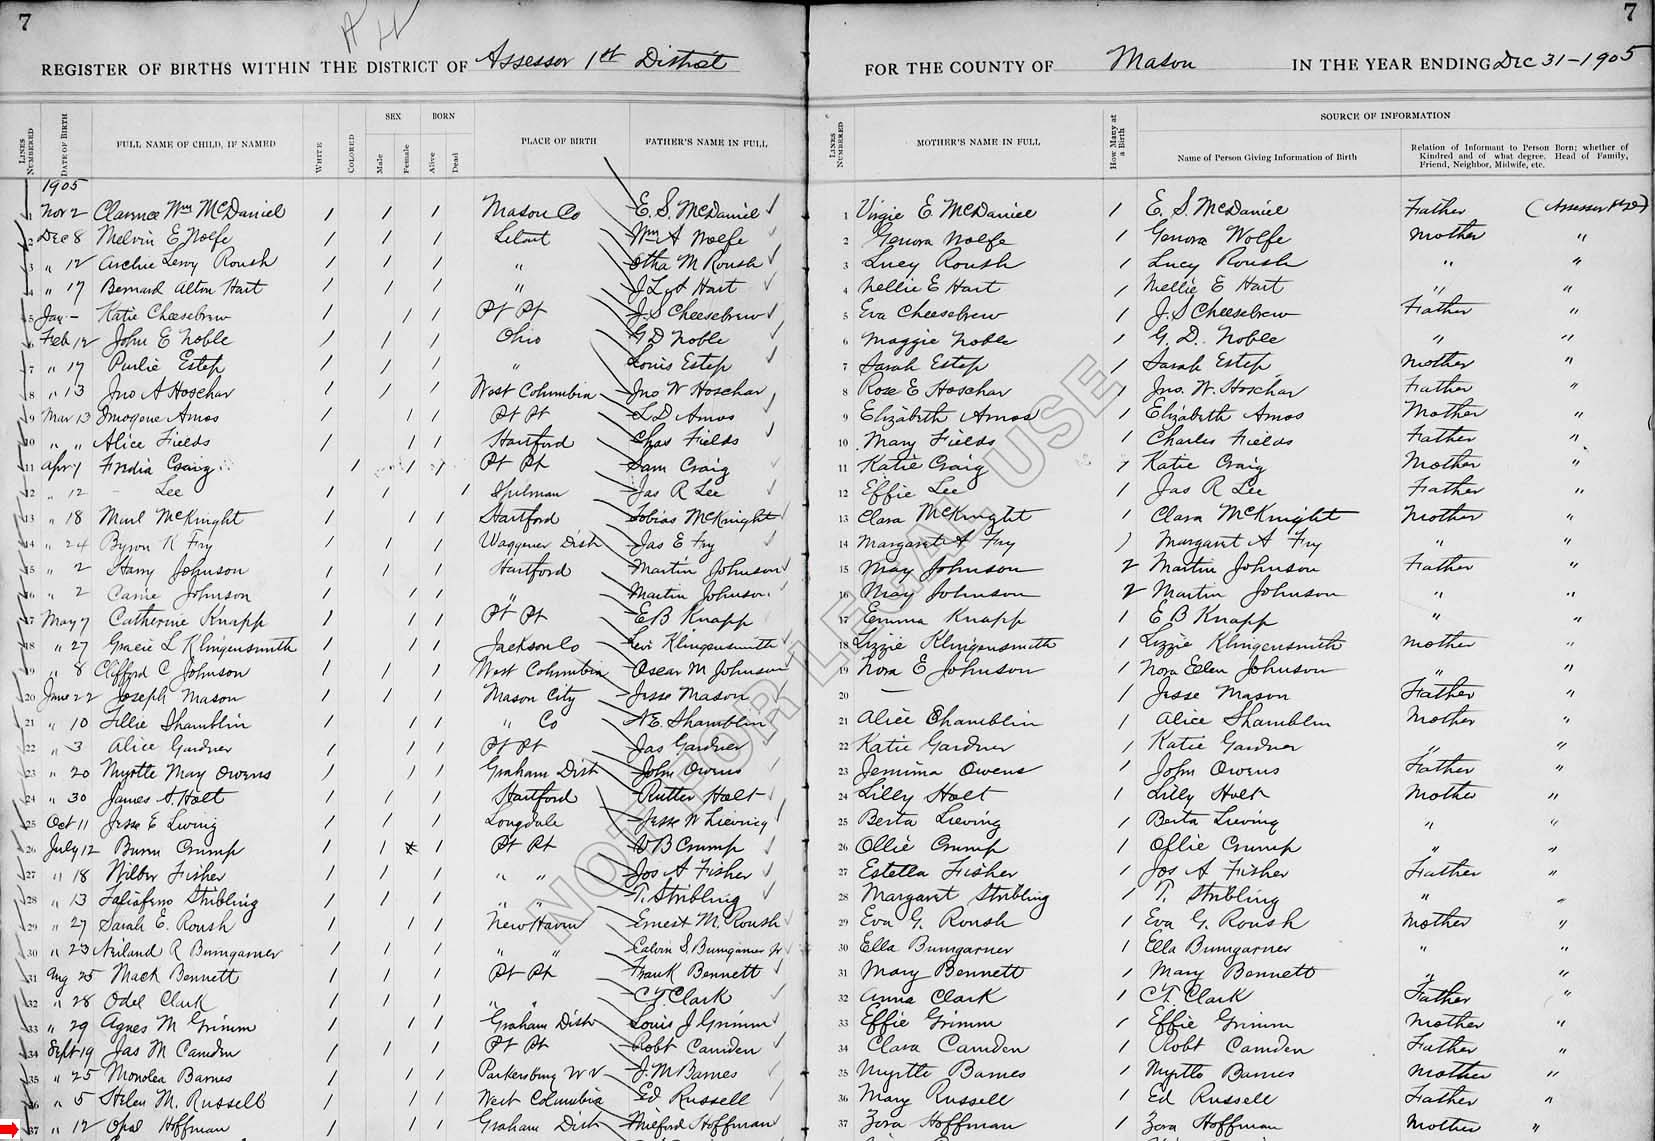 7 7
A H
REGISTER OF BIRTHS WITHIN THE DISTRICT OF Assessor 1st District FOR THE COUNTY OF Mason IN THE YEAR ENDING Dec 31-1905
LINES NUMBERED DATE OF BIRTH FULL NAME OF CHILD, IF NAMED WHITE COLORED SEX Male Female BORN Alive Dead PLACE OF BIRTH FATHER'S NAME IN FULL LINES NUMBERED MOTHER'S NAME IN FULL How Many at a Birth SOURCE OF INFORMATION Name of Person Giving Information of Birth Relation of Informant to Person Born; whether of Kindred and of what degree. Head of Family, Friend, Neighbor, Midwife, etc.
1905
1 Nov 2 Clarence Wm McDaniel / / / Mason Co E. S. McDaniel 1 Virgie E McDaniel 1 E. S. McDaniel Father (Assessor
2 Dec 8 Melvin E Wolfe / / / Letart Wm A Wolfe 2 Genora Wolfe 1 Genora Wolfe Mother "
3 " 12 Archie Leroy Roush / / / " Otha M Roush 3 Lucy Roush 1 Lucy Roush " "
4 " 17 Bernard Alton Hart / / / " Hart 4 Nellie E Hart 1 Nellie E Hart " "
5 Jan - Katie Cheesebrew / / / Pt Pt J. S Cheesebrew 5 Eva Cheesebrew 1 J. S Cheesebrew Father "
6 Feb 12 John E Noble / / / Ohio G D Noble 6 Maggie Noble 1 G. D. Noble " "
7 " 17 Purlie Estep / / / " Louis Estep 7 Sarah Estep 1 Sarah Estep Mother "
8 " 13 Jno A Hoschar / / / West Columbia Jno W Hoschar 8 Rose E Hoschar 1 Jno. W. Hoschar Father "
9 Mar 13 Imogene Amos / / / Pt Pt L. D Amos 9 Elizabeth Amos 1 Elizabeth Amos Mother "
10 " " Alice Fields / / / Hartford Chas Fields 10 Mary Fields 1 Charles Fields Father "
11 Apr 7 Fredia Craig / / / Pt Pt Sam Craig 11 Katie Craig 1 Katie Craig Mother "
12 " 12 - Lee / / / Spilman Jas R Lee 12 Effie Lee 1 Jas R Lee Father "
13 " 18 Merl McKnight / / / Hartford Tobias McKnight 13 Clara McKnight 1 Clara McKnight Mother "
14 " 24 Byron K Fry / / / Waggener Dist Jas E Fry 14 Margaret A Fry 1 Margaret A Fry " "
15 " 2 Harry Johnson / / / Hartford Martin Johnson 15 May Johnson 2 Martin Johnson Father "
16 " 2 Carrie Johnson / / / " Martin Johnson 16 May Johnson 2 Martin Johnson " "
17 May 7 Catherine Knapp / / / Pt Pt E B Knapp 17 Emma Knapp 1 E B Knapp " "
18 " 27 Gracie L Klingensmith / / / Jackson Co Levi Klingensmith 18 Lizzie Klingensmith 1 Lizzie Klingensmith Mother "
19 " 8 Clifford C Johnson / / / West Columbia Oscar M Johnson 19 Nora E Johnson 1 Nora Ellen Johnson " "
20 June 22 Joseph Mason / / / Mason City Jesse Mason 20 — 1 Jesse Mason Father "
21 " 10 Tillie Shamblin / / / " Co N E. Shamblin 21 Alice Shamblin 1 Alice Shamblin Mother "
22 " 3 Alice Gardner / / / Pt Pt Jas Gardner 22 Katie Gardner 1 Katie Gardner " "
23 " 20 Myrtle May Owens / / / Graham Dist John Owens 23 Jemima Owens 1 John Owens Father "
24 " 30 James A. Holt / / / Hartford Rutter Holt 24 Lilly Holt 1 Lilly Holt Mother "
25 Oct 11 Jesse E Lieving / / / Longdale Jesse W Lieving 25 Berta Lieving 1 Berta Lieving " "
26 July 12 Crump / / / Pt Pt B Crump 26 Ollie Crump 1 Ollie Crump " "
27 " 18 Wilber Fisher / / / " " Jos A Fisher 27 Estella Fisher 1 Jos A Fisher Father "
28 " 13 Taliaferro Stribling / / / " " T. Stribling 28 Margaret Stribling 1 T. Stribling " "
29 " 27 Sarah E. Roush / / / New Haven Ernest M. Roush 29 Eva G. Roush 1 Eva G. Roush Mother "
30 " 23 R Bumgarner / / / " " Calvin S Bumgarner 30 Ella Bumgarner 1 Ella Bumgarner " "
31 Aug 25 Mack Bennett / / / Pt Pt Frank Bennett 31 Mary Bennett 1 Mary Bennett " "
32 " 28 Odel Clark / / / " " C. T. Clark 32 Anna Clark 1 C. T. Clark Father "
33 " 29 Agnes M Grimm / / / Graham Dist Louis J Grimm 33 Effie Grimm 1 Effie Grimm Mother "
34 Sept 19 Jas M Camden / / / Pt Pt Robt Camden 34 Clara Camden 1 Robt Camden Father "
35 " 25 Monolea Barnes / / / Parkersburg W V J. M Barnes 35 Myrtle Barnes 1 Myrtle Barnes Mother "
36 " 5 Helen M. Russell / / / West Columbia Ed Russell 36 Mary Russell 1 Ed Russell Father "
37 " 12 Opal Hoffman / / / Graham Dist Milford Hoffman 37 Zora Hoffman 1 Zora Hoffman Mother "
NOT FOR LEGAL USE